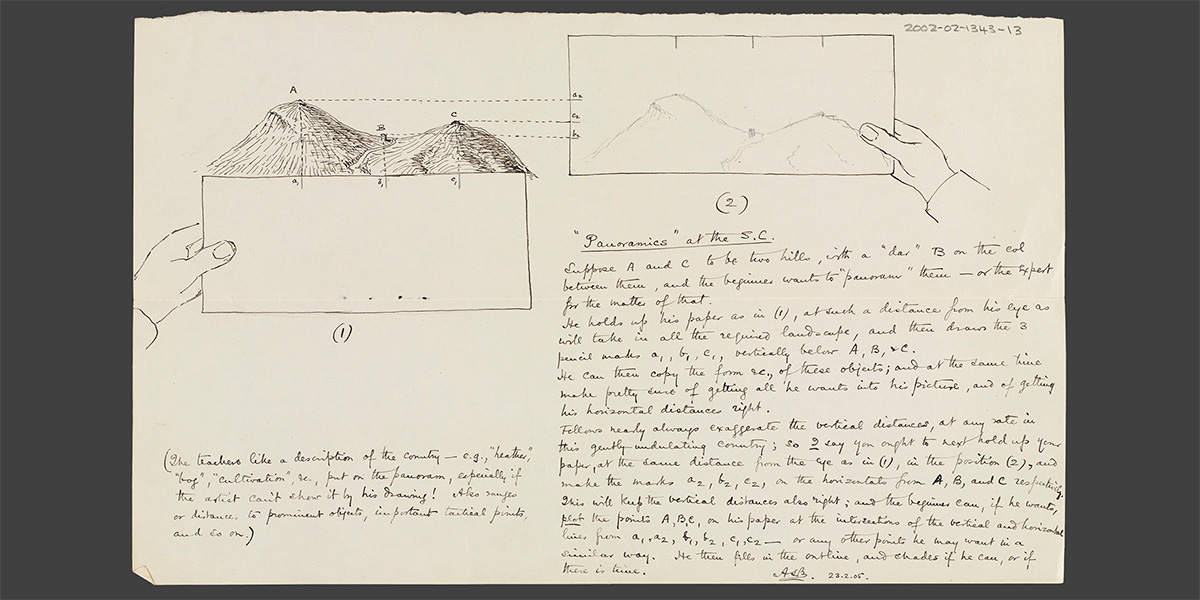 2002-02-1343-13
A
B
C
a₁ b₁ c₁
a₂
c₂
b₂
(1)
(2)
"Panoramics" at the S.C.
Suppose A and C to be two hills, with a "dar" B on the col
between them, and the beginner wants to "panoram" them — or the expert
for the matter of that.
He holds up his paper as in (1), at such a distance from his eye as
will take in all the required landscape, and then draws the 3
pencil marks a₁, b₁, c₁, vertically below A, B, & C.
He can then copy the form &c., of these objects; and at the same time
make pretty sure of getting all he wants into his picture, and of getting
his horizontal distances right.
Fellows nearly always exaggerate the vertical distances, at any rate in
this gently undulating country; so I say you ought to next hold up your
paper, at the same distance from the eye as in (1), in the position (2), and
make the marks a₂, b₂, c₂, on the horizontals from A, B, and C respectively.
This will keep the vertical distances also right; and the beginner can, if he wants,
plot the points A, B, C, on his paper at the intersections of the vertical and horizontal
lines from a₁, a₂, b₁, b₂, c₁, c₂ — or any other points he may want in a
similar way. He then fills in the outline, and shades if he can, or if
there is time.
23.2.05.
(The teachers like a description of the country — e.g., "heather",
"bog", "cultivation", &c., put on the panoram, especially if
the artist can't show it by his drawing! Also ranges
or distances to prominent objects, important tactical points,
and so on.)